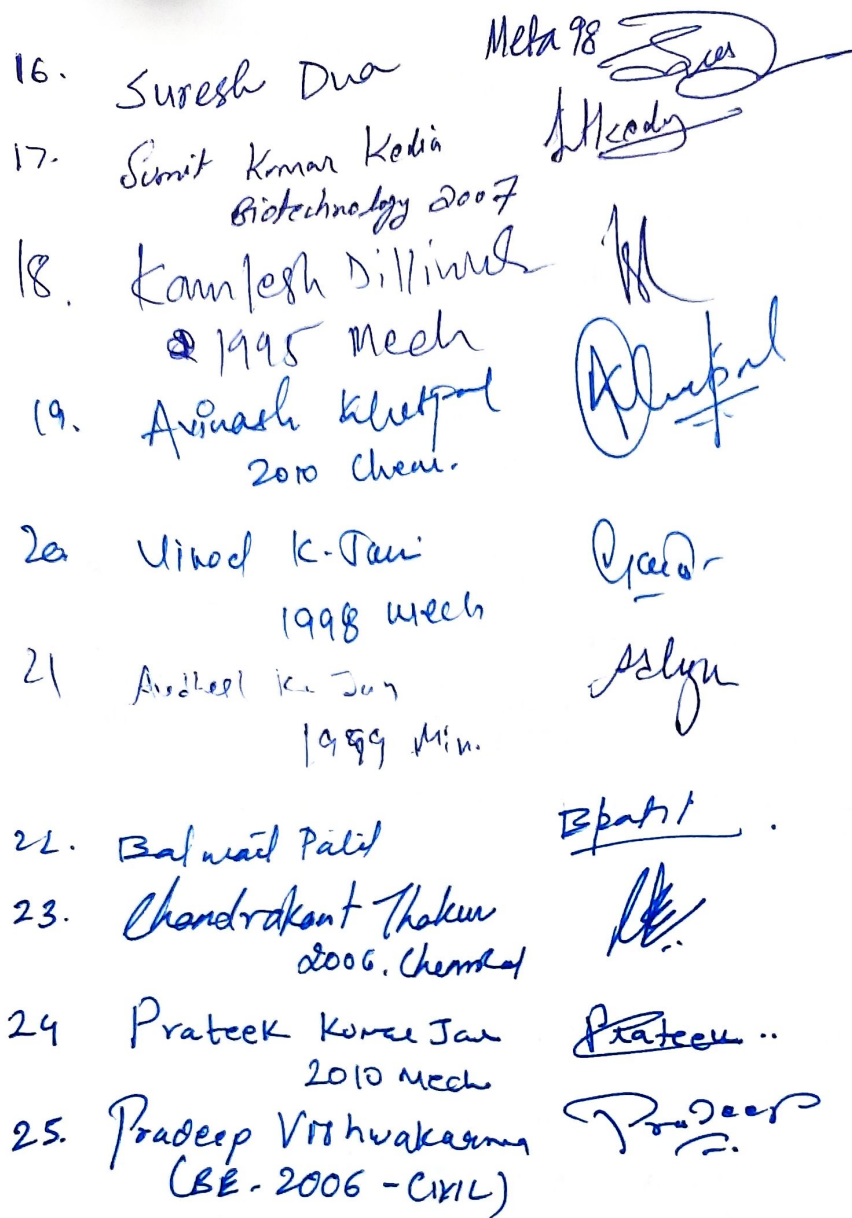 16. Suresh Dua Meta 98
17. Sumit Kumar Kedia
Biotechnology 2007
18. Kamlesh
1995 Mech
19. Avinash Khetpal
2010 Chem.
20 Vinod K.
1998 Mech
21
1999 Min.
22. Balwant Patil Bpatil
23. Chandrakant Thakur
2006. Chemical
24 Prateek Kumar Jain Prateek ..
2010 Mech
25. Pradeep Vishwakarma Pradeep
(BE. 2006 - CIVIL)